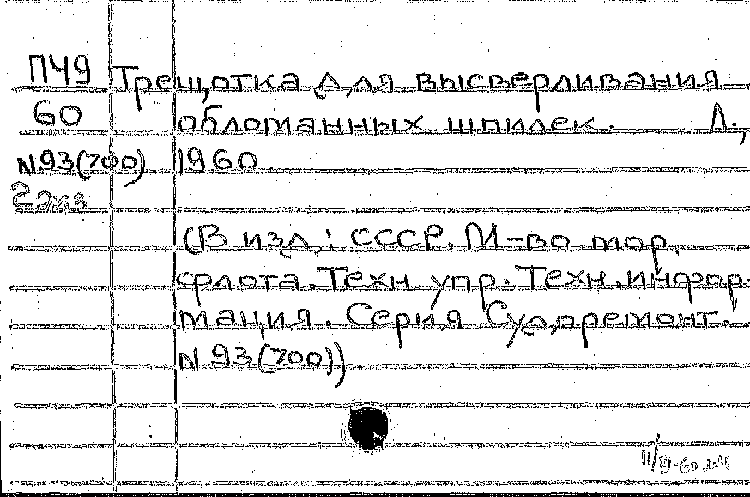 П49 Трещотка для высверливания
60 обломанных шпилек. Л.,
N93(700) 1960
2 экз
(В изд.: СССР. М-во мор.
флота. Техн упр. Техн. инфор-
мация. Серия Судоремонт.
N 93(700))